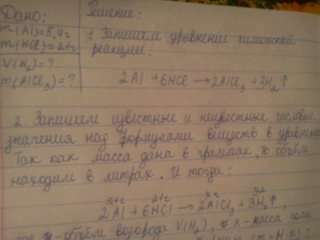 Дано:
m(Al)=5,4г
m(HCl)=
V(H₂)=?
m(AlCl₃)=?
Решение:
1. Запишем уравнение химической
реакции:
2Al + 6HCl → 2AlCl₃ + 3H₂↑
2. Запишем известные и неизвестные числовые
значения над формулами веществ в уравнении
Так как масса дана в граммах, то объём
находим в литрах. И тогда:
2Al + 6HCl → 2AlCl₃ + 3H₂↑
объём водорода V(H₂), масса соли